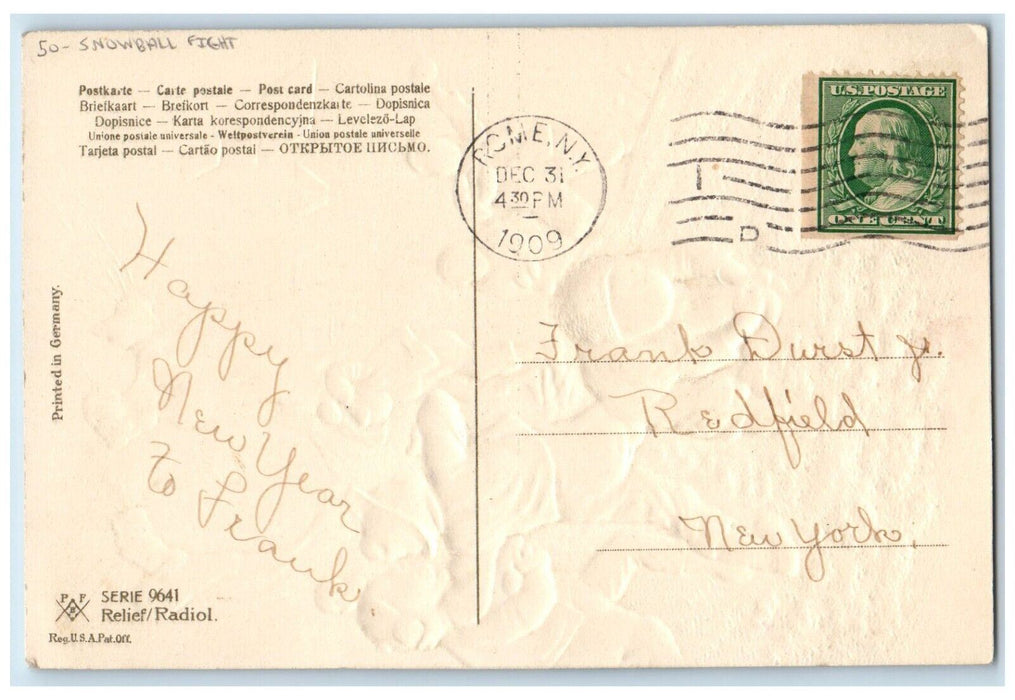 50- SNOWBALL FIGHT
Postkarte — Carte postale — Post card — Cartolina postale
Briefkaart — Brefkort — Correspondenzkarte — Dopisnica
Dopisnice — Karta korespondencyjna — Levelező-Lap
Unione postale universale - Weltpostverein - Union postale universelle
Tarjeta postal — Cartão postal — ОТКРЫТОЕ ПИСЬМО.
ROME, N.Y.
DEC 31
4 30 PM
1909
I
D
U.S. POSTAGE
ONE CENT
Printed in Germany.
Happy
New Year
to Frank.
Frank Durst Jr.
Redfield
New York.
P F
SERIE 9641
Relief/Radiol.
Reg. U.S.A. Pat. Off.